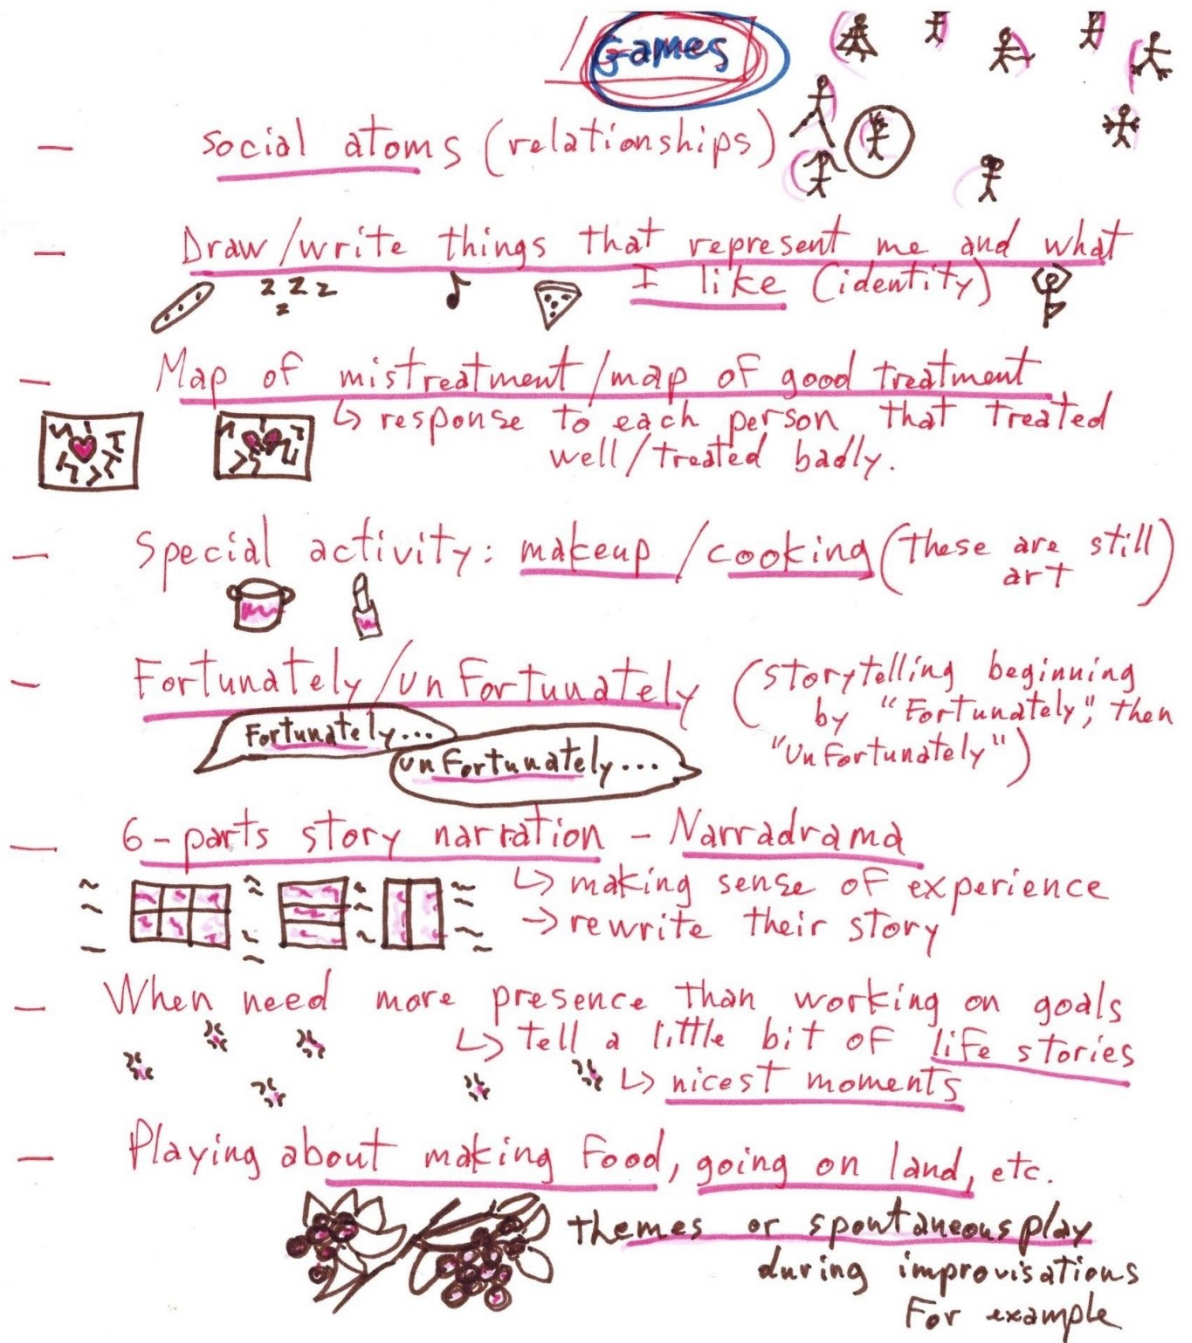 Games
- social atoms (relationships)
- Draw/write things that represent me and what
I like (identity)
z z z
z
- Map of mistreatment/map of good treatment
↳ response to each person that treated
well/treated badly.
- Special activity: makeup/cooking (these are still
art)
- Fortunately/unfortunately (storytelling beginning
by "Fortunately", then
"Unfortunately")
Fortunately...
unfortunately...
- 6-parts story narration - Narradrama
↳ making sense of experience
→ rewrite their story
- When need more presence than working on goals
↳ tell a little bit of life stories
↳ nicest moments
- Playing about making food, going on land, etc.
themes or spontaneous play
during improvisations
For example